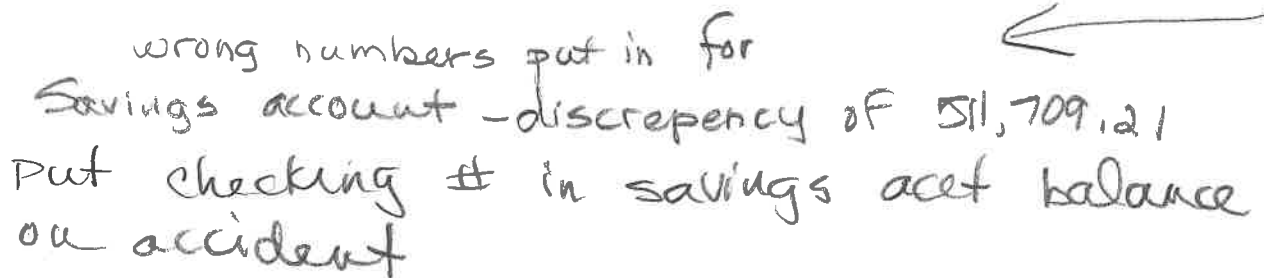 wrong numbers put in for
Savings account - discrepency of 511,709.21
Put checking # in savings acct balance
on accident